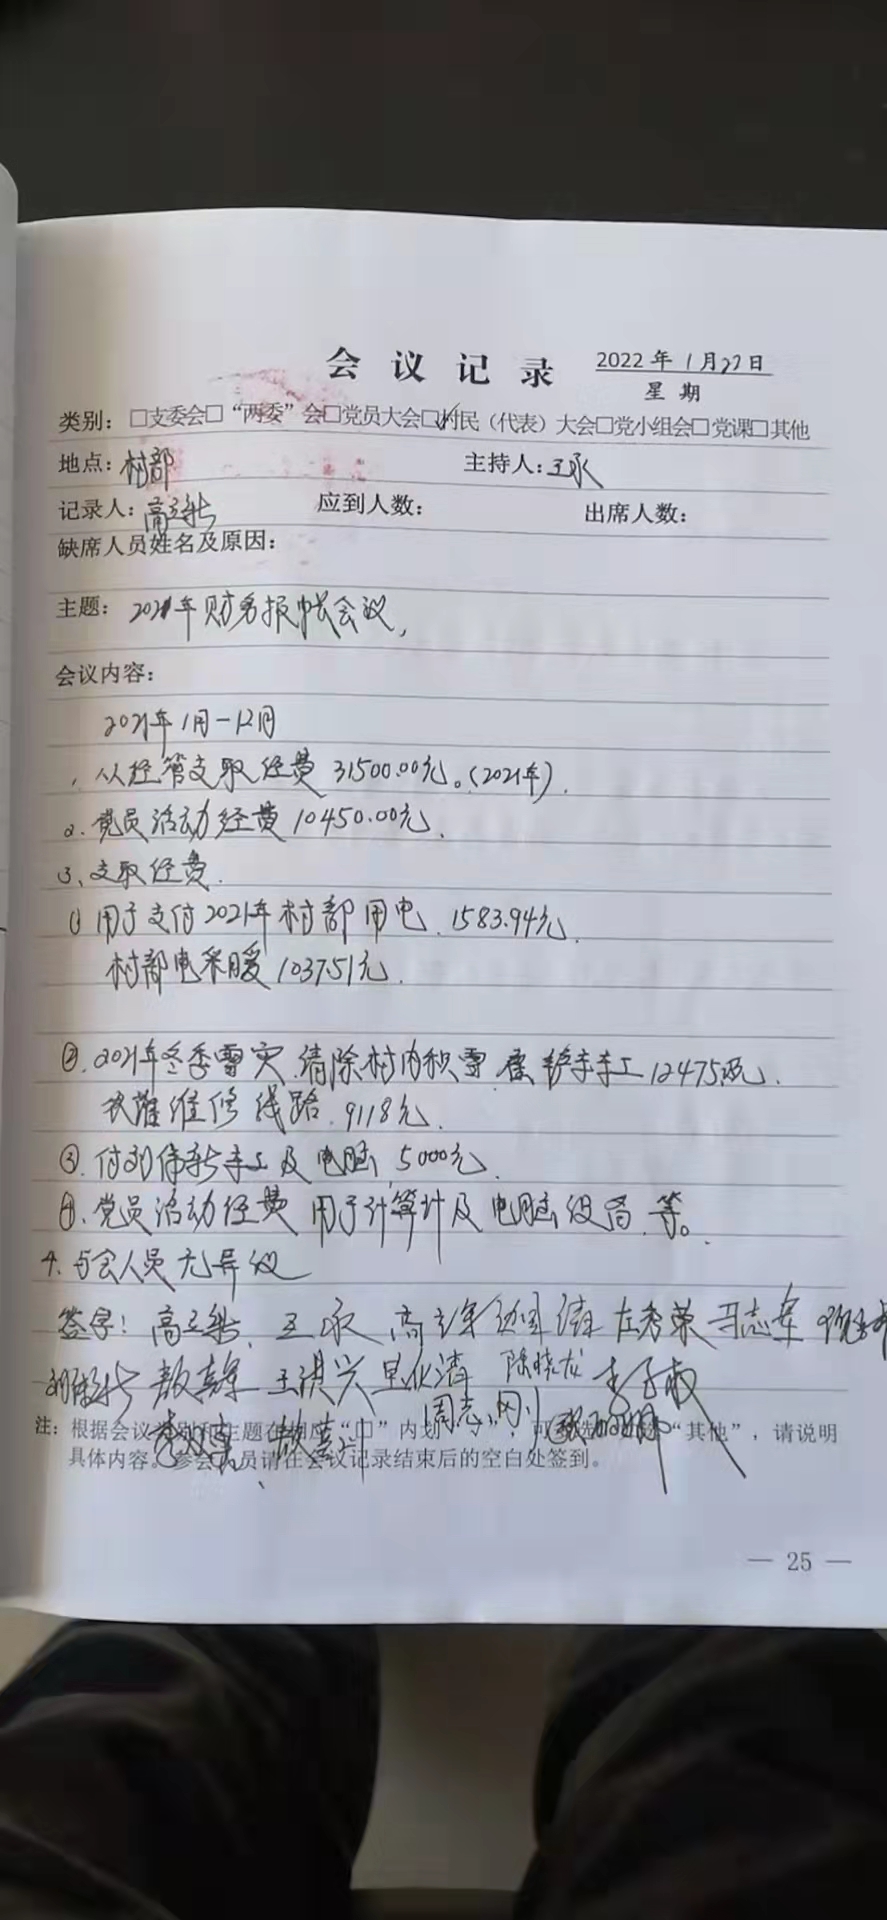 会议记录 2022年1月27日
星期
类别：□支委会□“两委”会□党员大会□村民（代表）大会□党小组会□党课□其他
地点：村部 主持人：王永
记录人：高立新 应到人数： 出席人数：
缺席人员姓名及原因：
主题：2021年财务报帐会议，
会议内容：
2021年1月-12月
1、从经管支取经费31500.00元。（2021年）.
2.党员活动经费10450.00元.
3、支取经费.
① 用于支付2021年村部用电.1583.94元.
村部电采暖1037.51元.
②.2021年冬季雪灾.清除村内积雪 铲车手工12475元.
维修线路.9118元.
③.付 手工及电脑 5000元.
④.党员活动经费用于计算计及电脑设备.等。
4.与会人员无异议
签字：高立新.王永 左秀荣 冯志军
王洪兴 陈晓龙
周志刚
注：根据会议类别和主题在相应“□”内划 ，可 选 “其他”，请说明
具体内容。参会人员请在会议记录结束后的空白处签到。
— 25 —